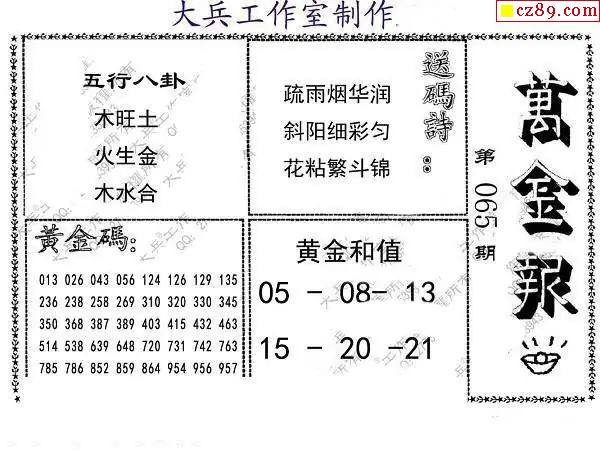 大兵工作室制作
cz89.com
五行八卦
木旺土
火生金
木水合
送碼詩:
疏雨烟华润
斜阳细彩匀
花粘繁斗锦
萬金報
第065期
黃金碼:
013 026 043 056 124 126 129 135
236 238 258 269 310 320 330 345
350 368 387 389 403 415 432 463
514 538 639 648 720 731 742 763
785 786 852 859 864 954 956 957
黄金和值
05 - 08- 13
15 - 20 -21